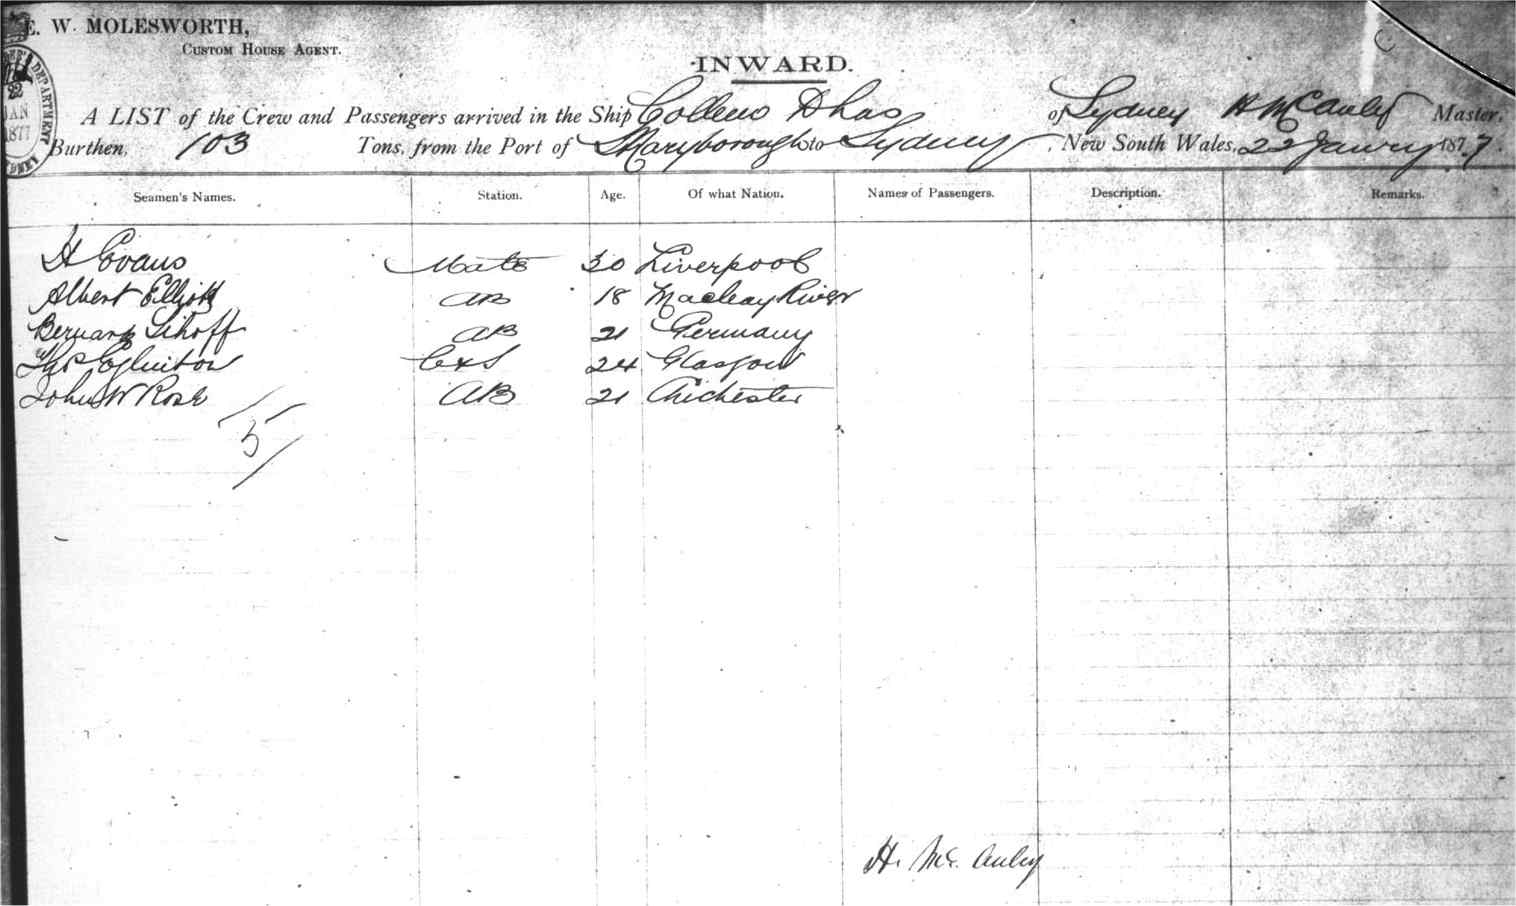 E. W. MOLESWORTH,
CUSTOM HOUSE AGENT.
INWARD.
A LIST of the Crew and Passengers arrived in the Ship Colleen Dhas of Sydney H McAuley Master,
Burthen, 103 Tons, from the Port of Maryborough to Sydney, New South Wales, 22 January 1877.
Seamen's Names. Station. Age. Of what Nation. Names of Passengers. Description. Remarks.
H Evans Mate 30 Liverpool
Albert Elliott AB 18 Macleay River
Bernard AB 21 Germany
Thos Eglinton C&S 24 Glasgow
John W Rose AB 21 Chichester
5
H. McAuley
DEPARTMENT
JAN
1877